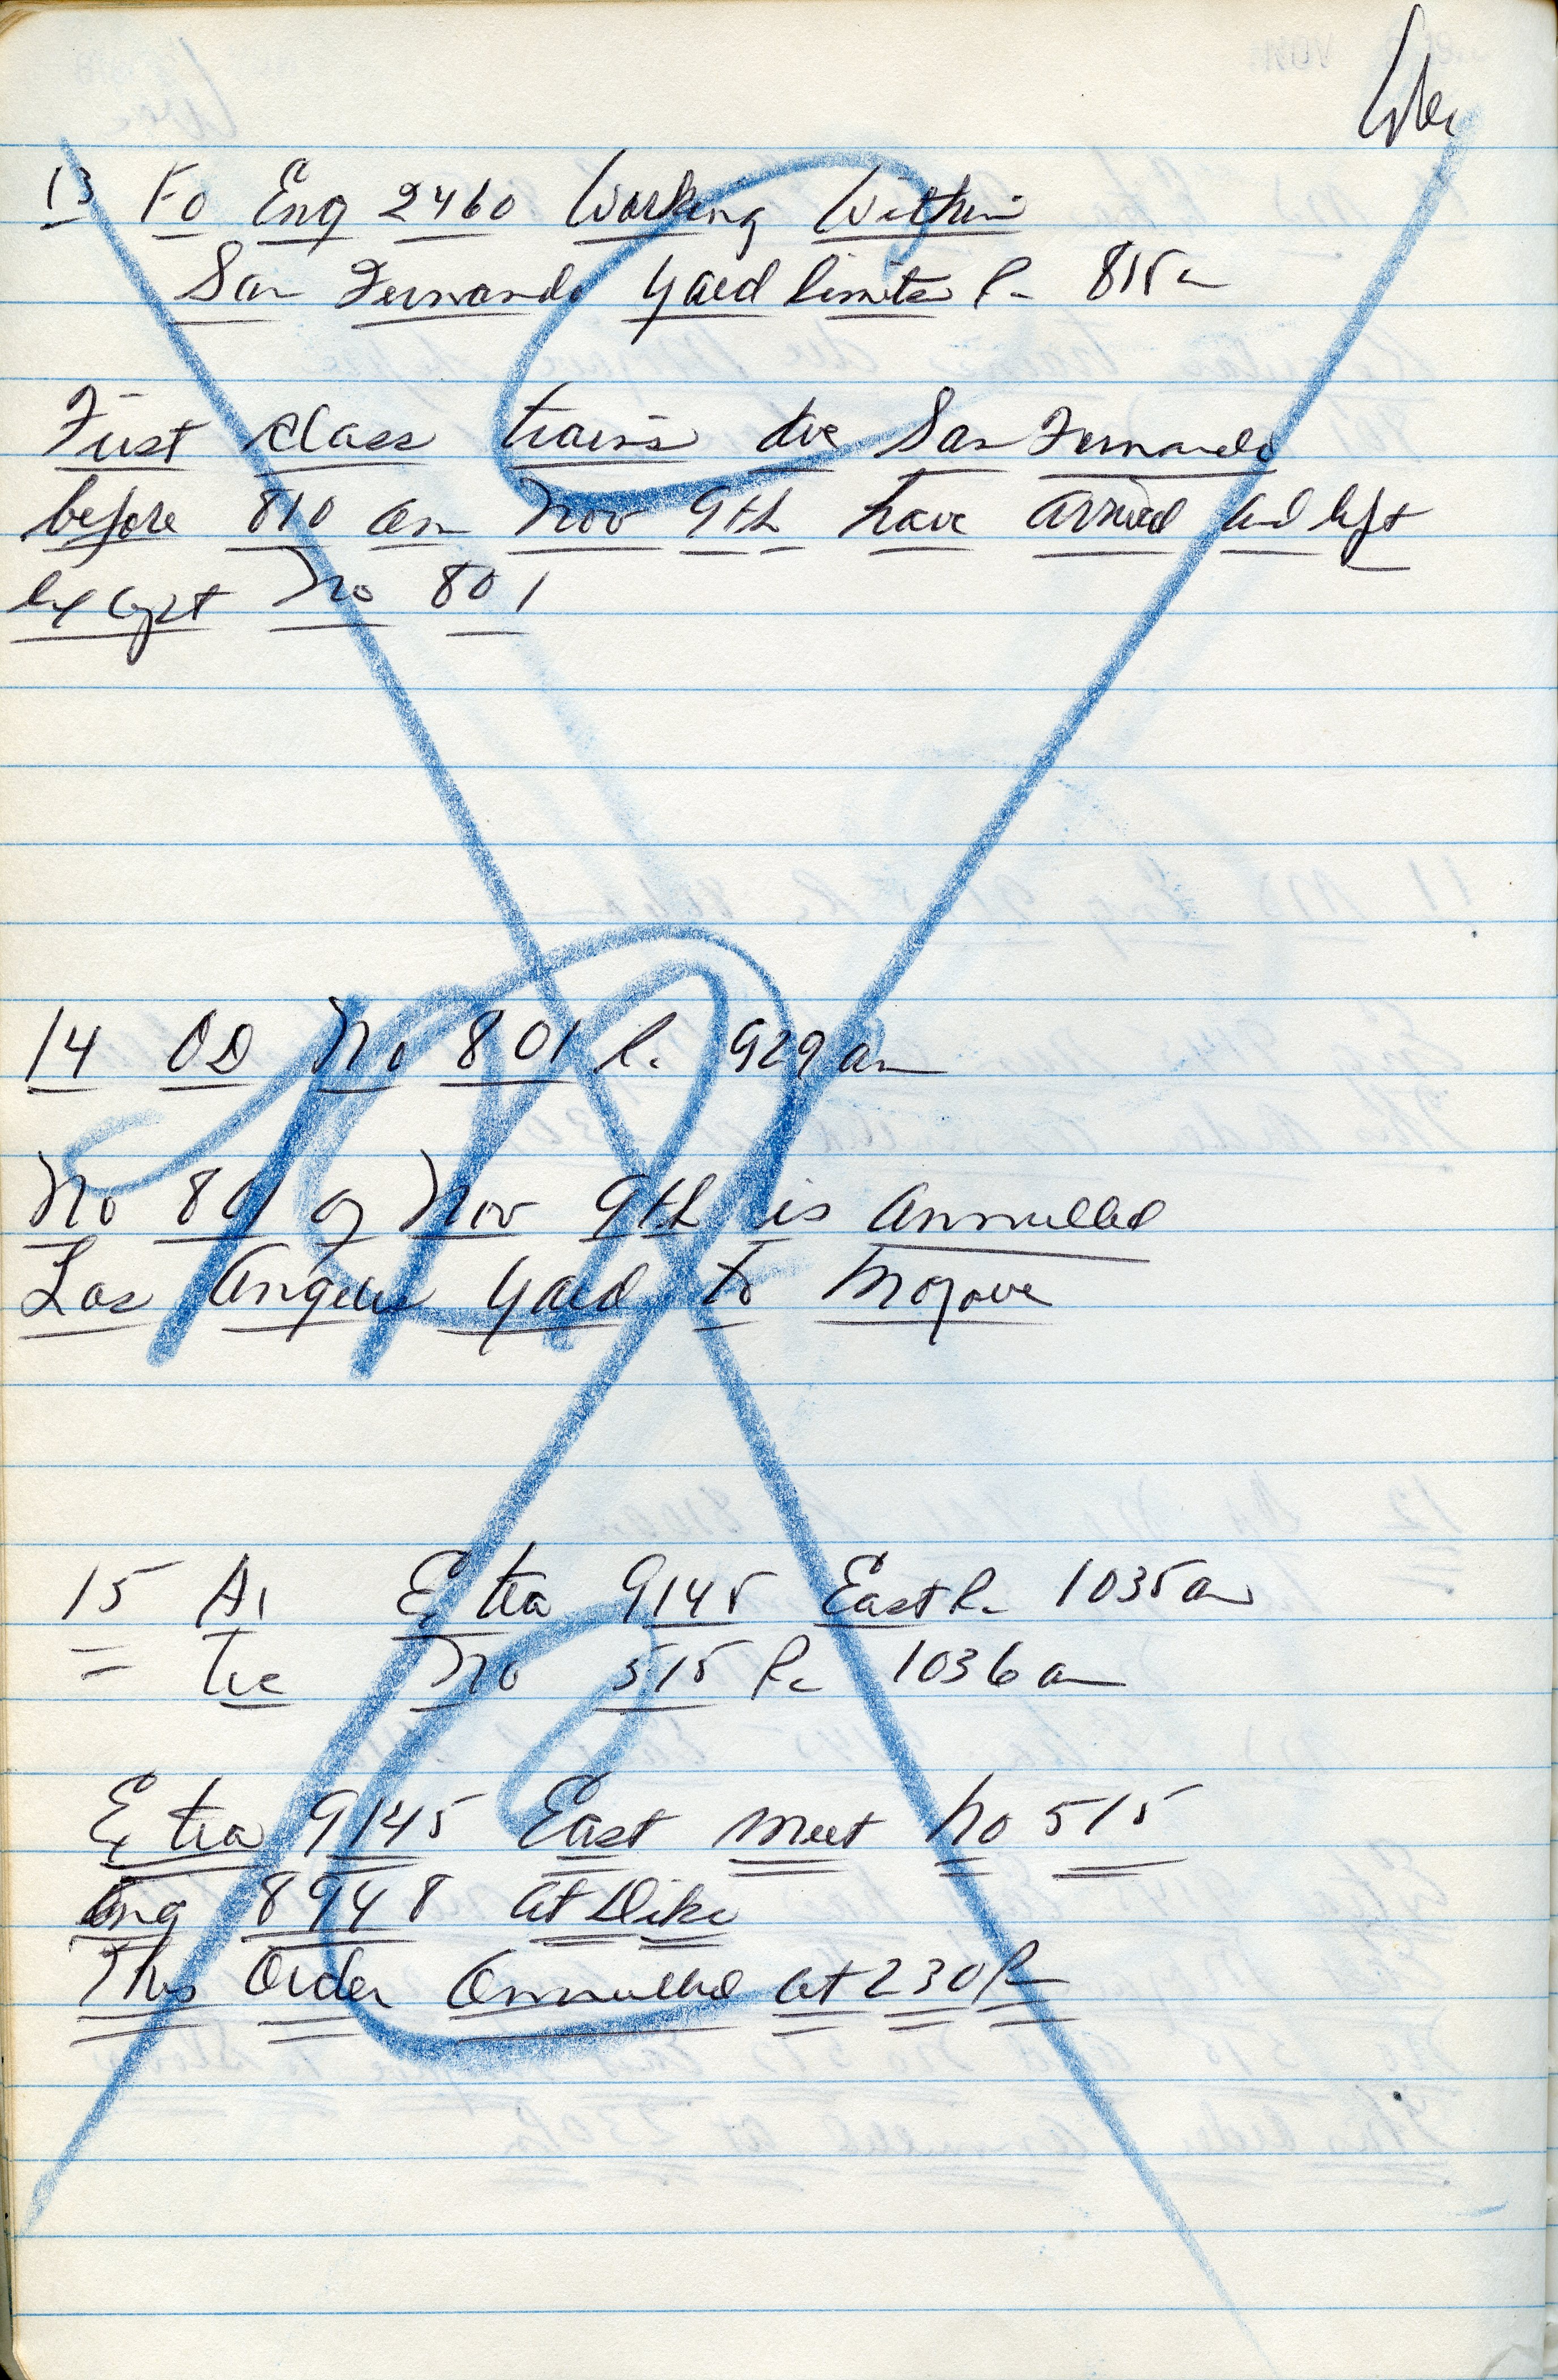 13 Fo Eng 2460 Working Within
San Fernando Yard limits 815a
First class trains due San Fernando
before 810 am Nov 9th have arrived and left
except No 801
14 OD No 801 929 am
No 801 of Nov 9th is annulled
Los Angeles Yard to Mojave
15 Extra 9145 East 1035 am
No 515 1036 am
Extra 9145 East meet No 515
Eng 8948 at Dike
This Order annulled at 230 Pm